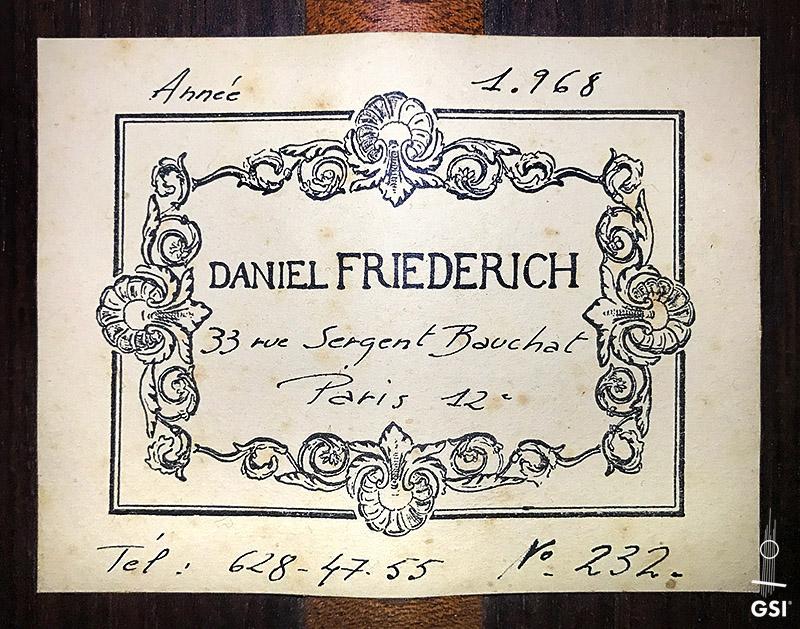 Année 1.968
DANIEL FRIEDERICH
33 rue Sergent Bauchat
Paris 12e
Tél : 628-47.55 No. 232.
GSI®